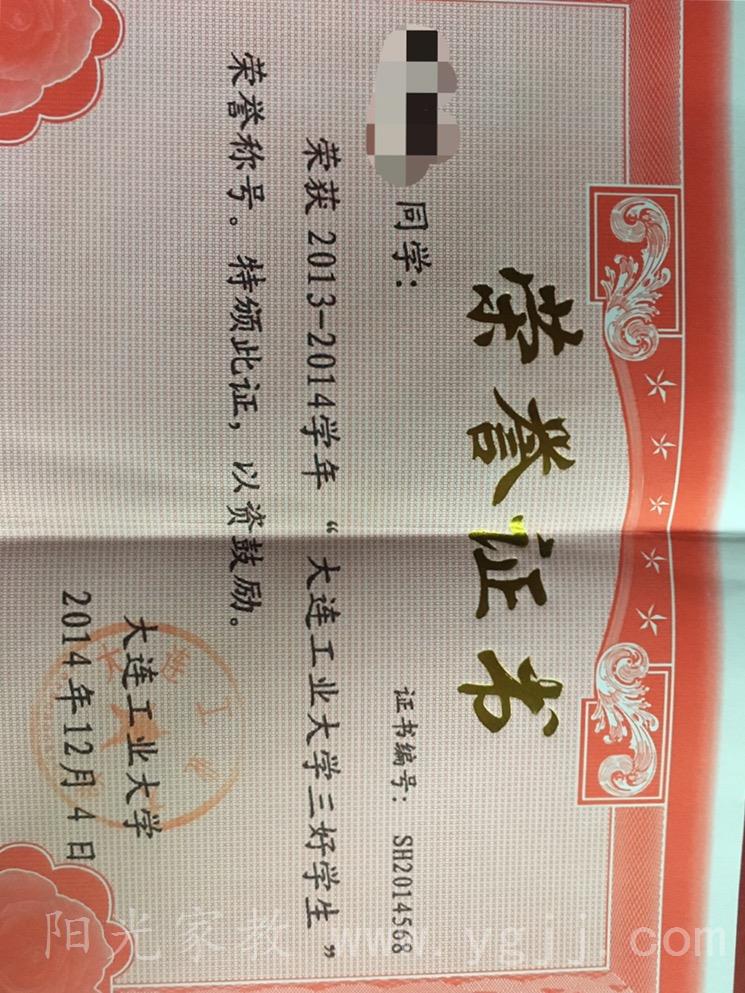 荣誉证书
证书编号：SH2014568
同学：
荣获2013-2014学年“大连工业大学三好学生”
荣誉称号。特颁此证，以资鼓励。
大连工业大学
2014年12月4日
阳光家教 www.ygjj.com